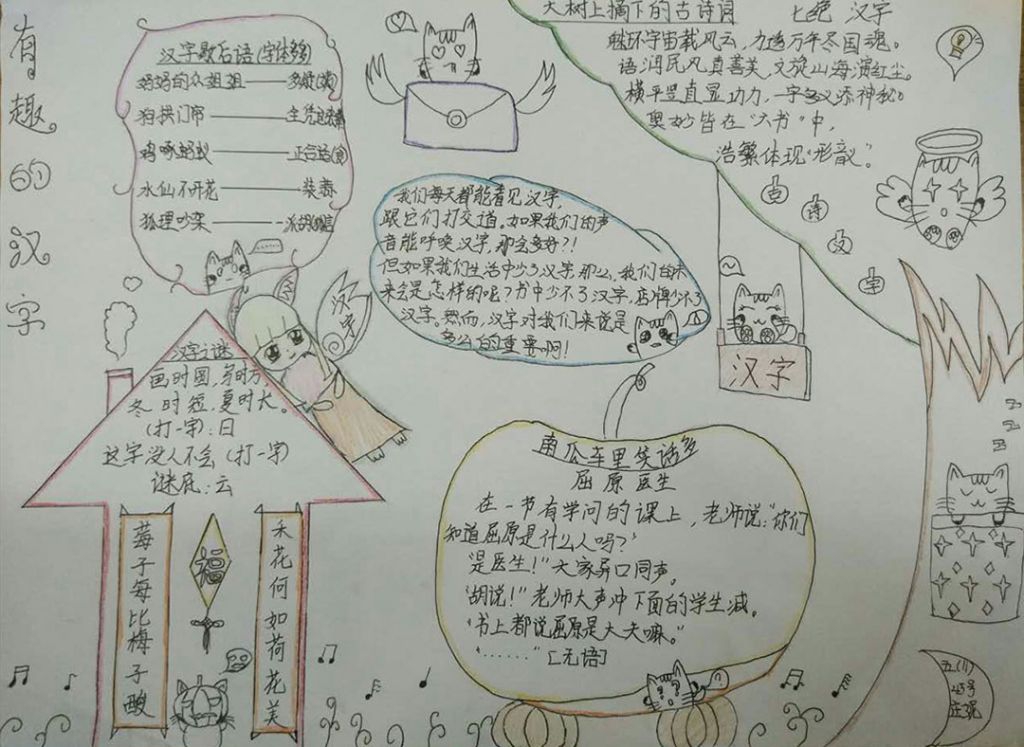 有趣的汉字
汉字歇后语(字体多多)
妈妈的众姐姐——多姨(疑)
狗拱门帘——
鸡啄蚂蚁——
水仙不开花——装蒜
狐狸吵架——
大树上摘下的古诗词
七绝 汉字
胸怀宇宙载风云，力透万年尽国魂。
语润民风真善美，文旋山海演红尘。
横平竖直显功力，一字多义添神秘。
奥妙皆在“六书”中，
浩繁体现“形韵”。
古
诗
汉字
我们每天都能看见汉字，
跟它们打交道。如果我们的声
音能呼唤汉字，那会多好？！
但如果我们生活中少了汉字，那么，我们的未
来会是怎样的呢？书中少不了汉字，店牌少不了
汉字。然而，汉字对我们来说是
多么的重要啊！
汉字
汉字之谜
画时圆，写时方，
冬时短，夏时长。
(打一字)：日
这字没人不会(打一字)
谜底：云
莓子每比梅子酸
福
禾花何如荷花美
南瓜车里笑话多
屈原医生
在一节有学问的课上，老师说：“你们
知道屈原是什么人吗？”
“是医生！”大家异口同声。
“胡说！”老师大声冲下面的学生喊。
“书上都说屈原是大夫嘛。”
“……”[无语]